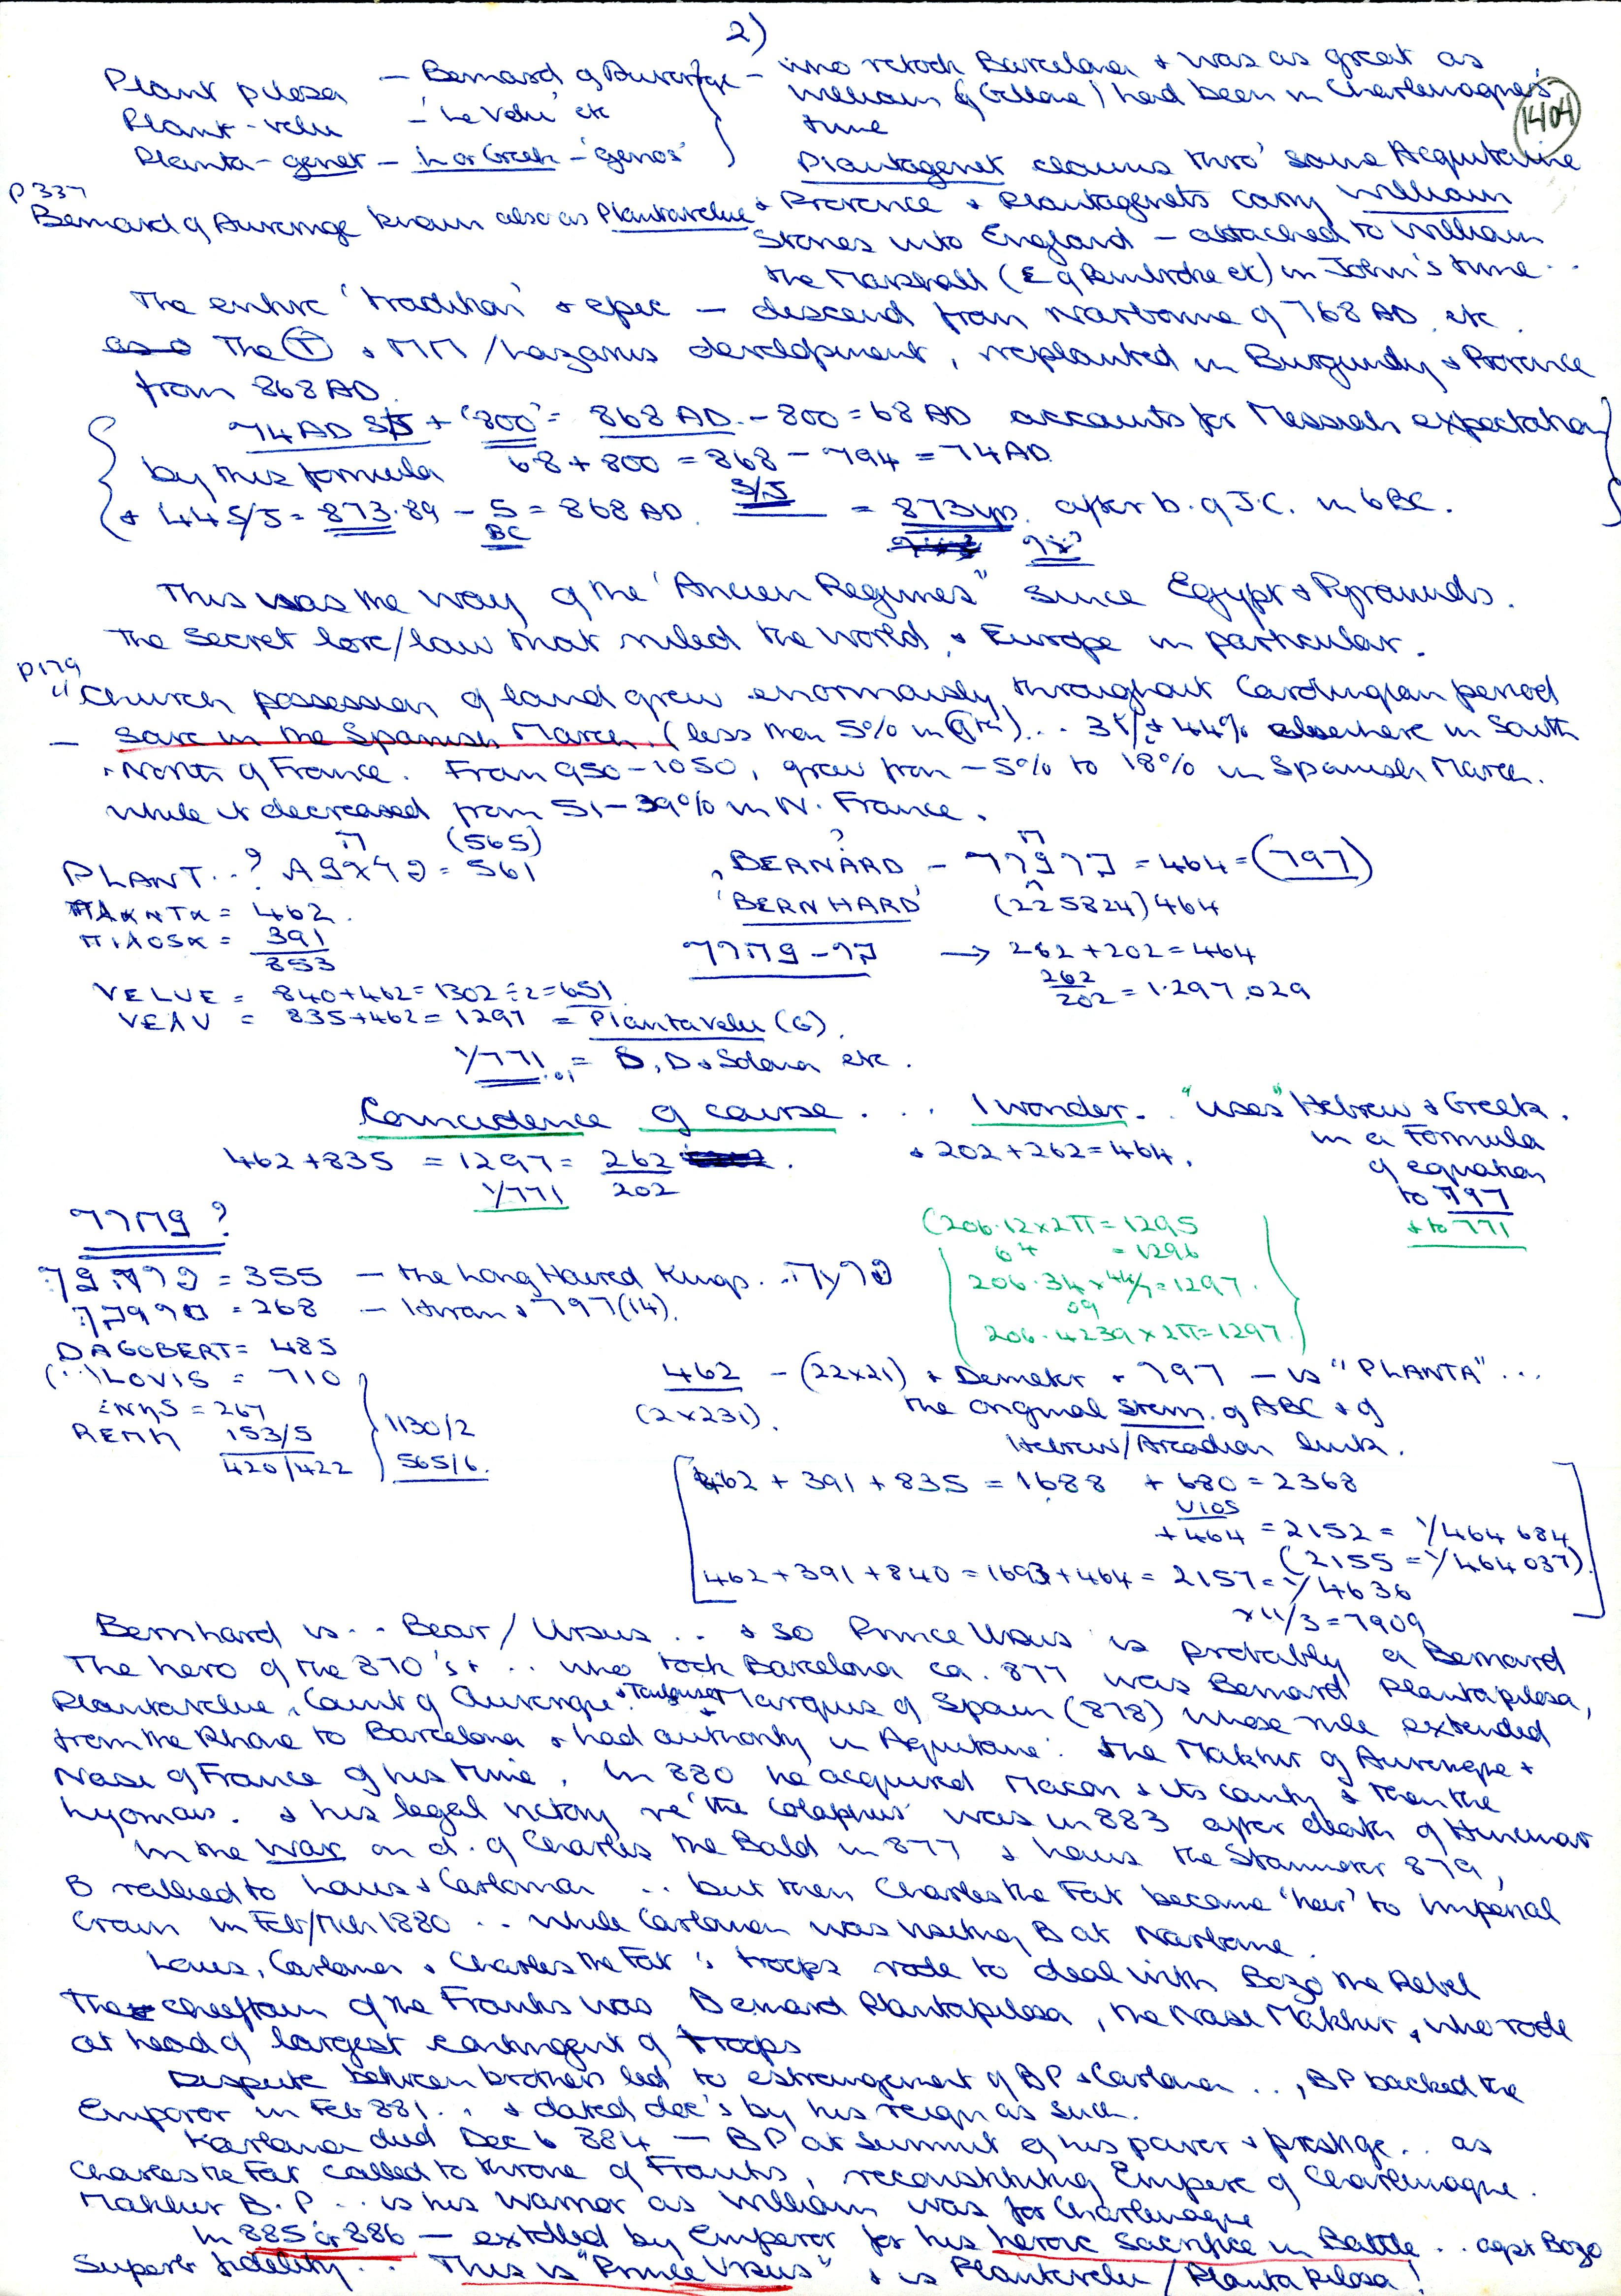 2)
1404
Plant pilosa — Bernard of Auvergne — who retook Barcelona + was as great as
Plant-velu — 'Le Velu' etc William (of Gellone) had been in Charlemagne's
time
Planta-genet — in or Greek — 'genos'
Plantagenet claims thro' same Acquitaine
p 337
Bernard of Auvernge known also as Plantavelue + Provence + Plantagenets carry William
Stories into England — attached to William
the Marshall (E of Pembroke etc) in John's time..
The entire 'tradition' + epic — descend from Narbonne of 768 AD etc.
The (T) + MM/Lazarus development, replanted in Burgundy + Provence
from 868 AD.
74 AD S/J + '800' = 868 AD. - 800 = 68 AD accounts for Messiah expectation
by this formula 68 + 800 = 868 - 794 = 74 AD
+ 44 S/J = 873.89 - 5 = 868 AD. S/J = 873 yrs. after b. of J.C. in 6 BC.
BC
This was the way of the 'Ancien Regimes" since Egypt + Pyramids.
The Secret lore/law that ruled the world, + Europe in particular.
p179
"Church possession of land grew enormously throughout Carolingian period
— save in the Spanish March. (less than 5% in 9th)... 31% + 44% elsewhere in South
+ North of France. From 950-1050, grew from -5% to 18% in Spanish March.
while it decreased from 51-39% in N. France.
(565)
PLANT..? = 561
ΠΛΑΝΤΑ = 462.
ΠΙΛΟΣΑ = 391
853
VELUE = 840+462=1302÷2=651
VEΛV = 835+462=1297 = Plantavelu (G).
1/771.01 = D, D + Solena etc.
BERNARD — = 464 = (797)
'BERNHARD' (225824) 464
→ 262+202=464
262
202 = 1.297,029
Coincidence of course.... I wonder.. "uses" Hebrew + Greek.
in a Formula
of equation
to 797
+ to 771
462+835 = 1297 = 262
1/771 202
+ 202+262=464.
(206.12 x 2π = 1295
64 = 1296
206.34 x 44/7 = 1297.
09
206.4239 x 2π = 1297.)
= 355 — the Long Haired Kings.
= 268 — Hiram + 797 (14).
DAGOBERT = 485
(..)LOVIS = 710
= 267
153/5
420/422
1130/2
565/6.
462 — (22x21) + Demeter + 797 — is "PLANTA"...
(2x231). the original stem. of ABC + of
Hebrew/Arcadian link.
462 + 391 + 835 = 1688 + 680 = 2368
VIOS
+ 464 = 2152 = 1/464 684
(2155 = 1/464 037)
462 + 391 + 840 = 1693 + 464 = 2157 = 1/4636
x 11/3 = 7909
Bernhard is.. Bear / Ursus.. + so Prince Ursus is probably a Bernard
The hero of the 870's+.. who took Barcelona ca. 877 was Bernard Plantapilosa,
Plantavelue, Count of Auvergne + Toulouse + Marquis of Spain (878) whose rule extended
from the Rhone to Barcelona + had authority in Aquitane. the Makhir of Auvergne +
Nasi of France of his time. In 880 he acquired Macon + its county + then the
Lyonnais. + his legal victory re 'the Colaphus' was in 883 after death of Hincmar
In the war on d. of Charles the Bald in 877 + Louis the Stammerer 879,
B rallied to Louis + Carloman .. but then Charles the Fat became 'heir' to Imperial
Crown in Feb/Mch 1880 .. while Carloman was visiting B at Narbonne.
Louis, Carloman + Charles the Fat's troops rode to deal with Bozo the Rebel
The chieftain of the Franks was Bernard Plantapilosa, the Nasi Makhir, who rode
at head of largest contingent of troops
Dispute between brothers led to estrangement of BP + Carloman .., BP backed the
Emperor in Feb 881.. + dated doc's by his reign as such.
Karloman died Dec 6 884 — BP at summit of his power + prestige.. as
Charles the Fat called to throne of Franks, reconstituting Empire of Charlemagne.
Makhir B.P... is his warrior as William was for Charlemagne
In 885 or 886 — extolled by Emperor for his heroic sacrifice in Battle.. agst Bozo
Superb fidelity.. This is "Prince Ursus" + is Plantevelu / Planta Pilosa!